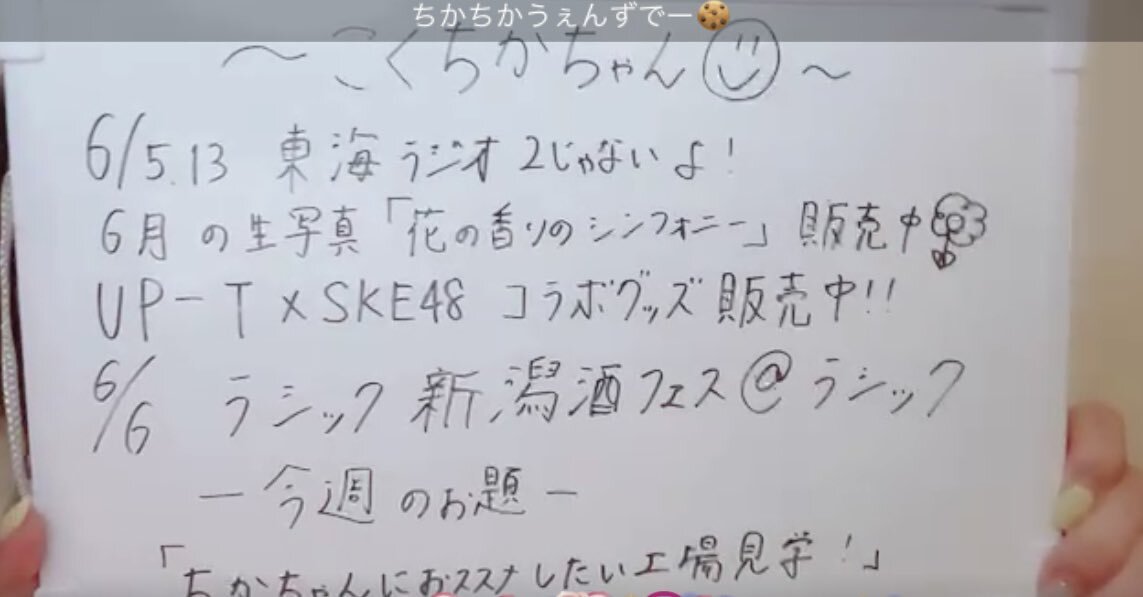 ちかちかうぇんずでー🍪
～こくちかちゃん☺～
6/5.13 東海ラジオ 2じゃないよ！
6月の生写真「花の香りのシンフォニー」販売中
UP-T×SKE48 コラボグッズ販売中!!
6/6 ラシック 新潟酒フェス@ラシック
ー今週のお題ー
「ちかちゃんにおススメしたい工場見学！」